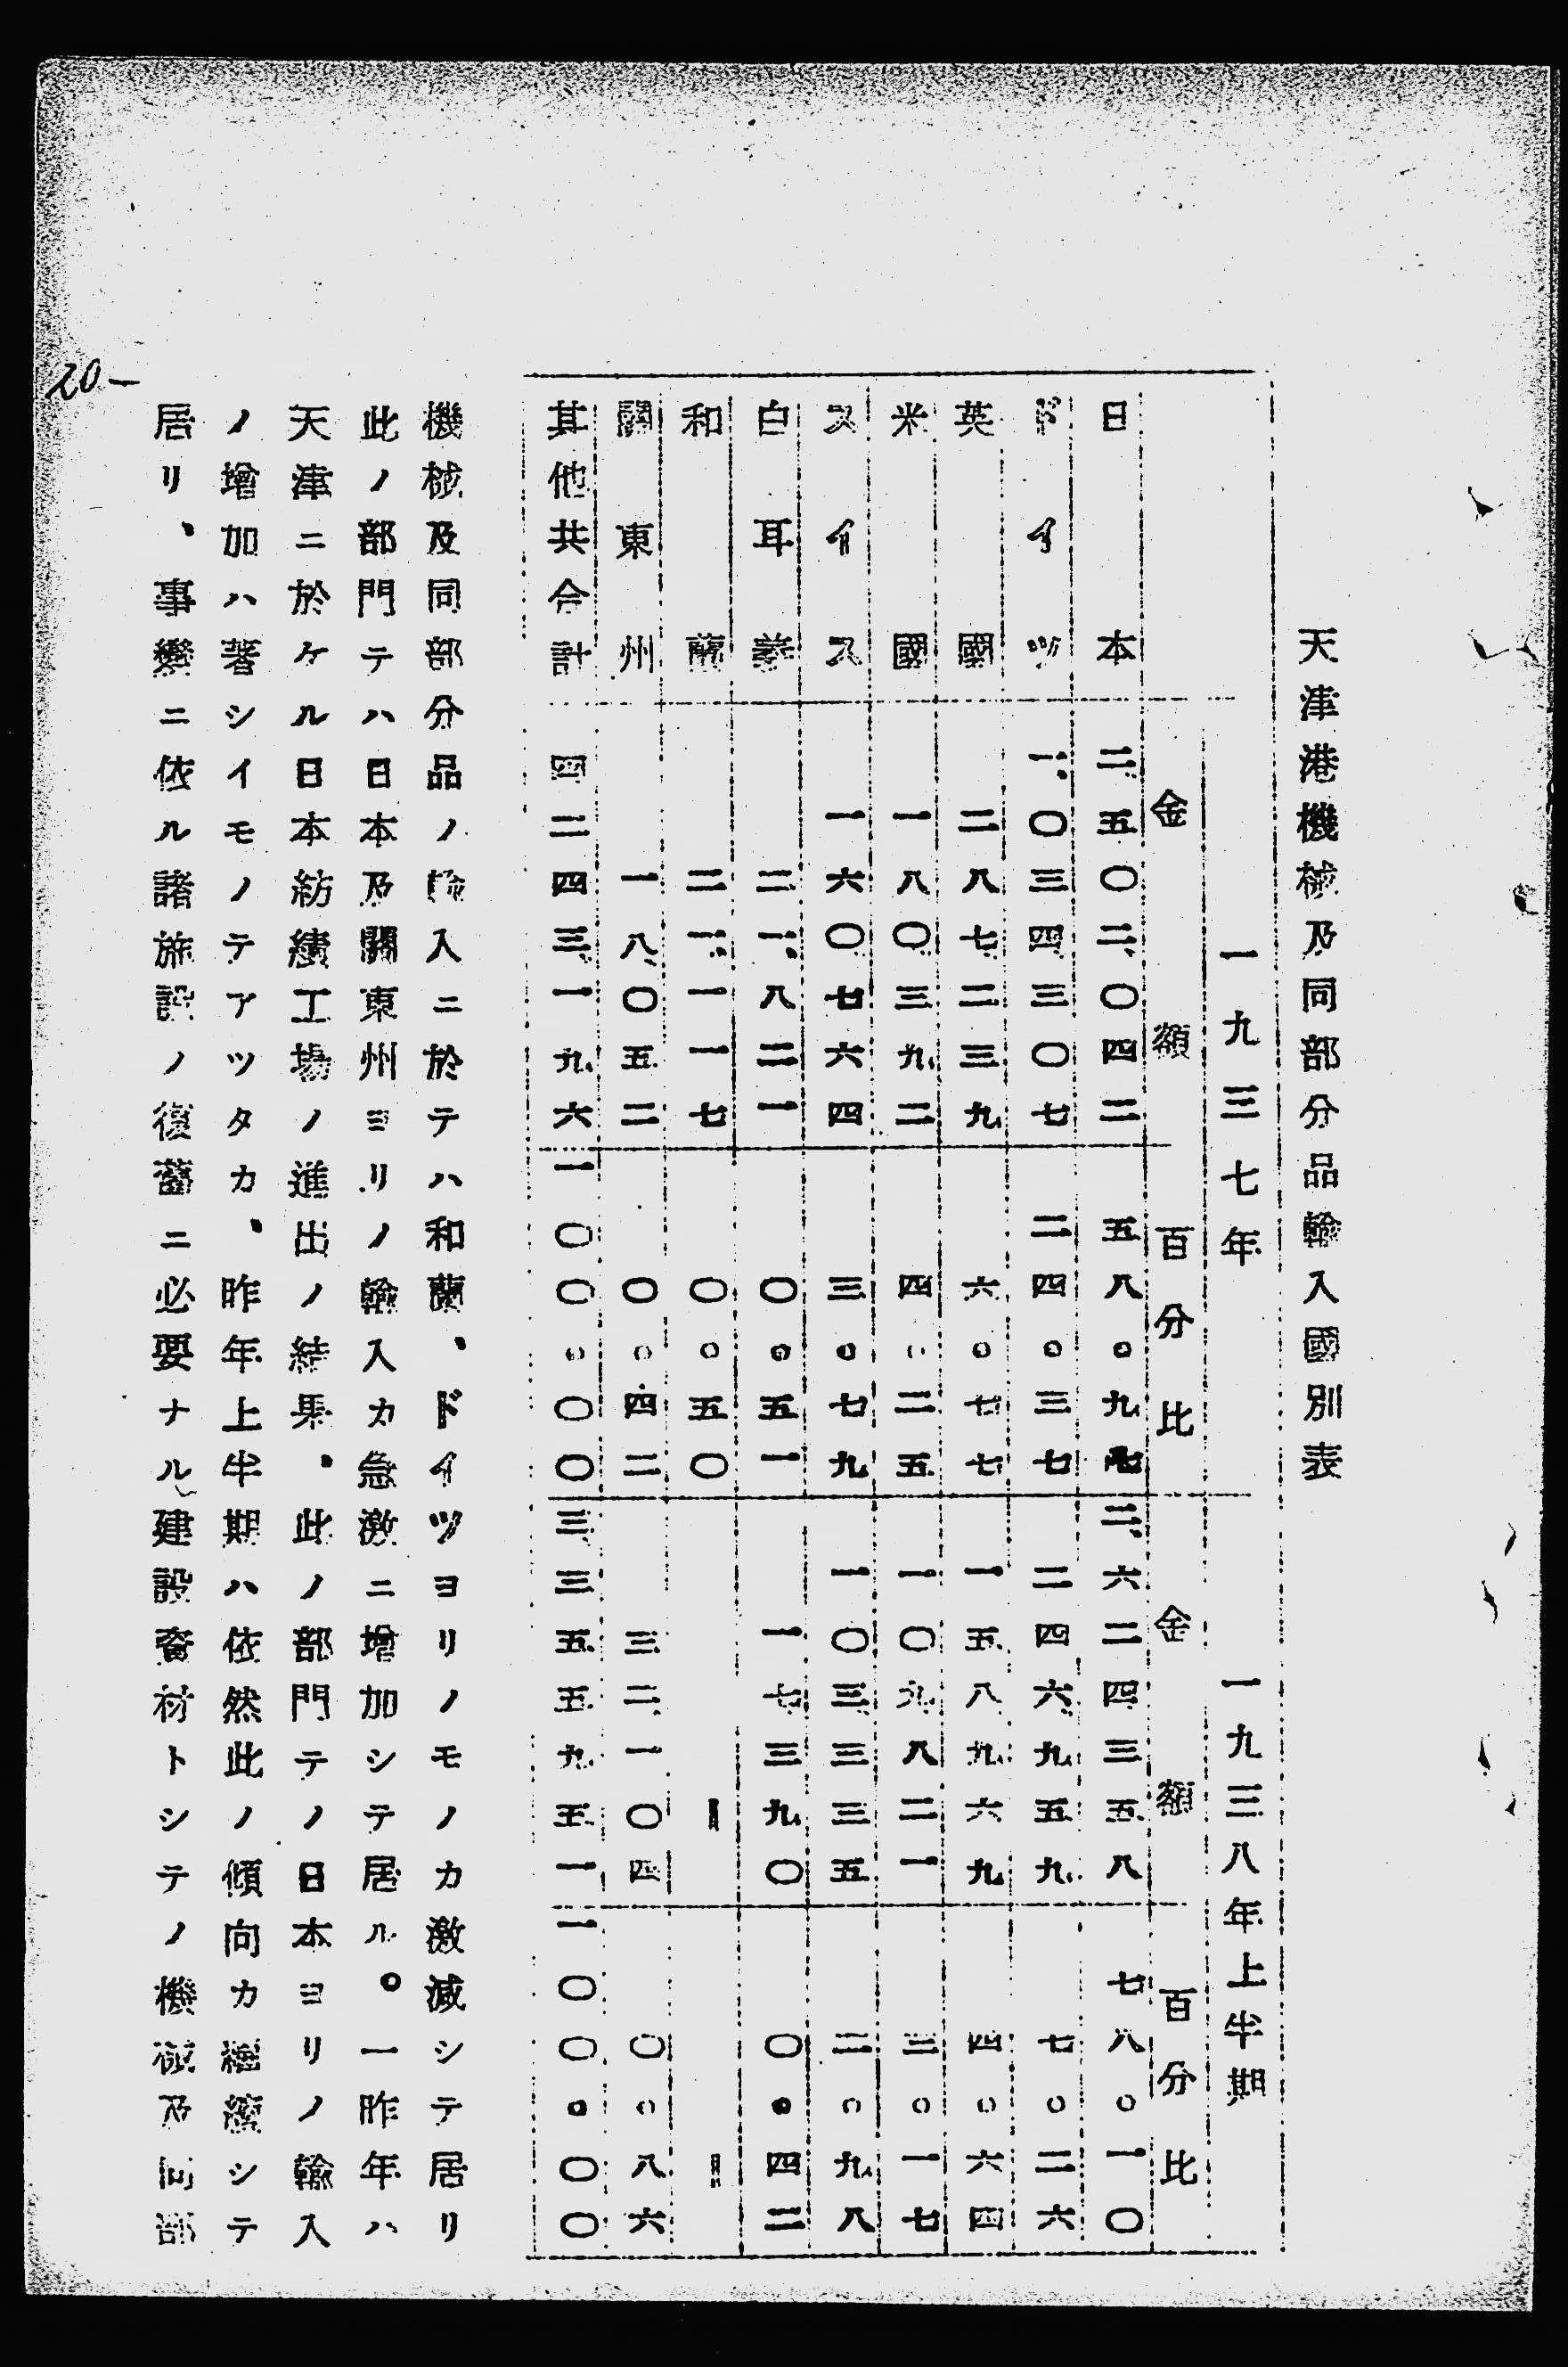 天津港機械及同部分品輸入國別表
一九三七年 一九三八年上半期
金額 百分比 金額 百分比
日本 二、五〇二、〇四二 五八。九七 二、六二四、三五八 七八。一〇
ドイツ 一、〇三四、三〇七 二四。三七 二四六、九五九 七。二六
英國 二八七、二三九 六。七七 一五八、九六九 四。六四
米國 一八〇、三九二 四。二五 一〇九、八二一 三。一七
スイス 一六〇、七六四 三。七九 一〇三、三三五 二。九八
白耳義 二一、八二一 〇。五一 一七、三九〇 〇。四二
和蘭 二一、一一七 〇。五〇 ー ー
關東州 一八、〇五二 〇。四二 三二、一〇四 〇。八六
其他共合計 四二四三、一九六 一〇〇。〇〇 三、三五五、九五一 一〇〇。〇〇
機械及同部分品ノ輸入ニ於テハ和蘭、ドイツヨリノモノカ激減シテ居リ
此ノ部門テハ日本及關東州ヨリノ輸入カ急激ニ增加シテ居ル。一昨年ハ
天津ニ於ケル日本紡績工場ノ進出ノ結果、此ノ部門テノ日本ヨリノ輸入
ノ增加ハ著シイモノテアツタカ、昨年上半期ハ依然此ノ傾向カ繼續シテ
居リ、事變ニ依ル諸施設ノ復舊ニ必要ナル建設資材トシテノ機械及同部
20—